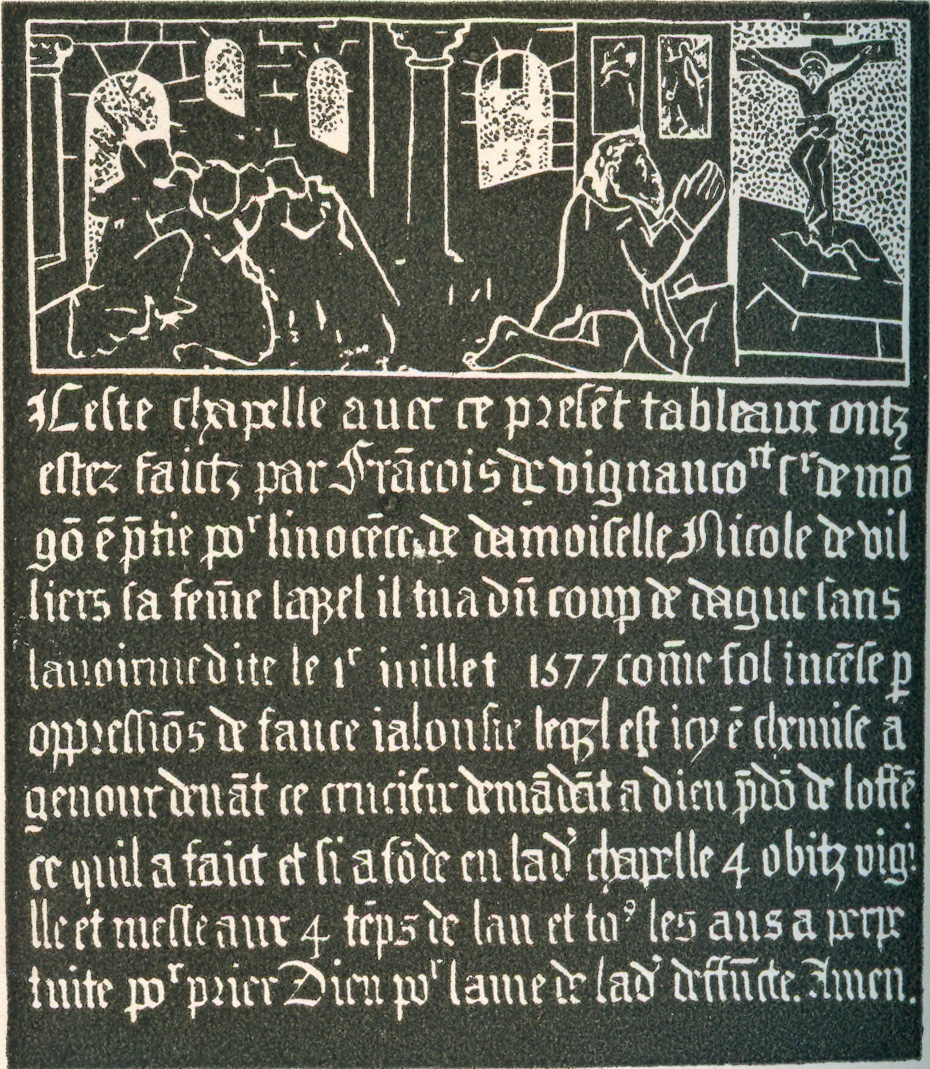 Ceste chapelle auec ce presēt tableaux ontz
estez faictz par Frācois de vignancoʳᵗ sʳ de mō
gō ē p̄tie poʳ linocēce de damoiselle Nicole de vil
liers sa fem̄e laqzel il tua dūn coup de dague sans
lauoirmedite le 1ʳ iuillet 1577 com̄e fol incēse ꝑ
oppressiōs de fauce ialousie leqzl est icy ē chemise a
genoux deuāt ce crucifix demādāt a dieu p̄dō de loffē
ce quil a faict et si a fōde en lad' chapelle 4 obitz vigi
lle et messe aux 4 tēps de lan et toꝰ les ans a perpe
tuite poʳ prier Dieu poʳ lame de lad' deffūcte. Amen.